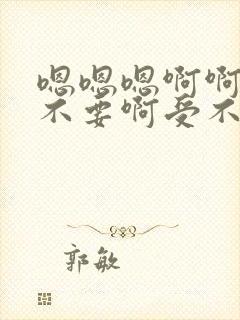 嗯嗯嗯啊啊
不要啊受不
郭敏